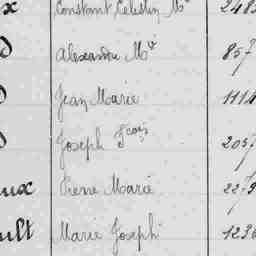 x Constant Célestin Mie 248
d Alexandre Mie 857
d Jean Marie 1114
d Joseph Fcois 2057
aux René Marie 2279
ault Marie Joseph 1236